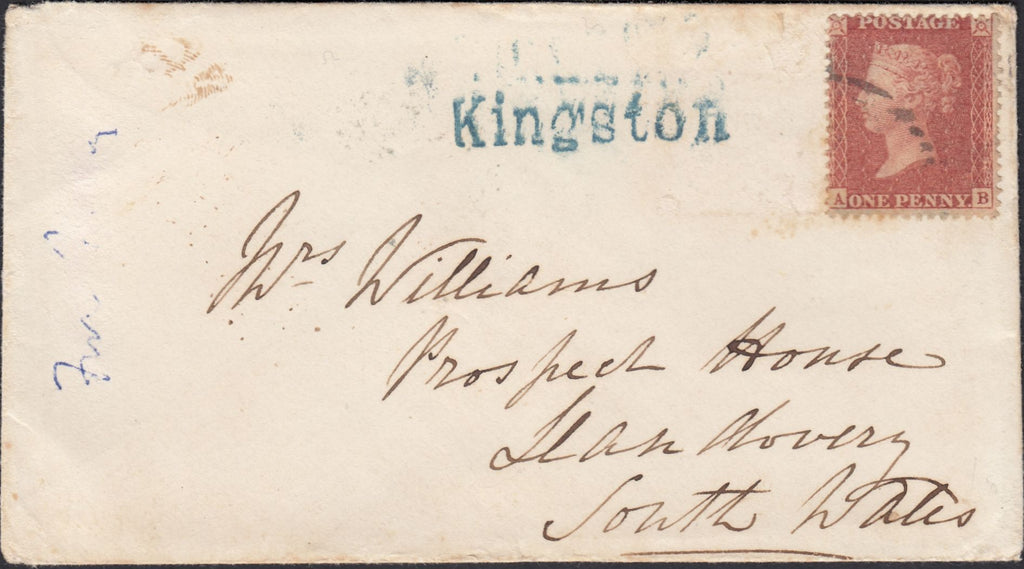 POSTAGE
Kingston
A ONE PENNY. B
Mrs Williams
Prospect House
Llandovery
South Wales